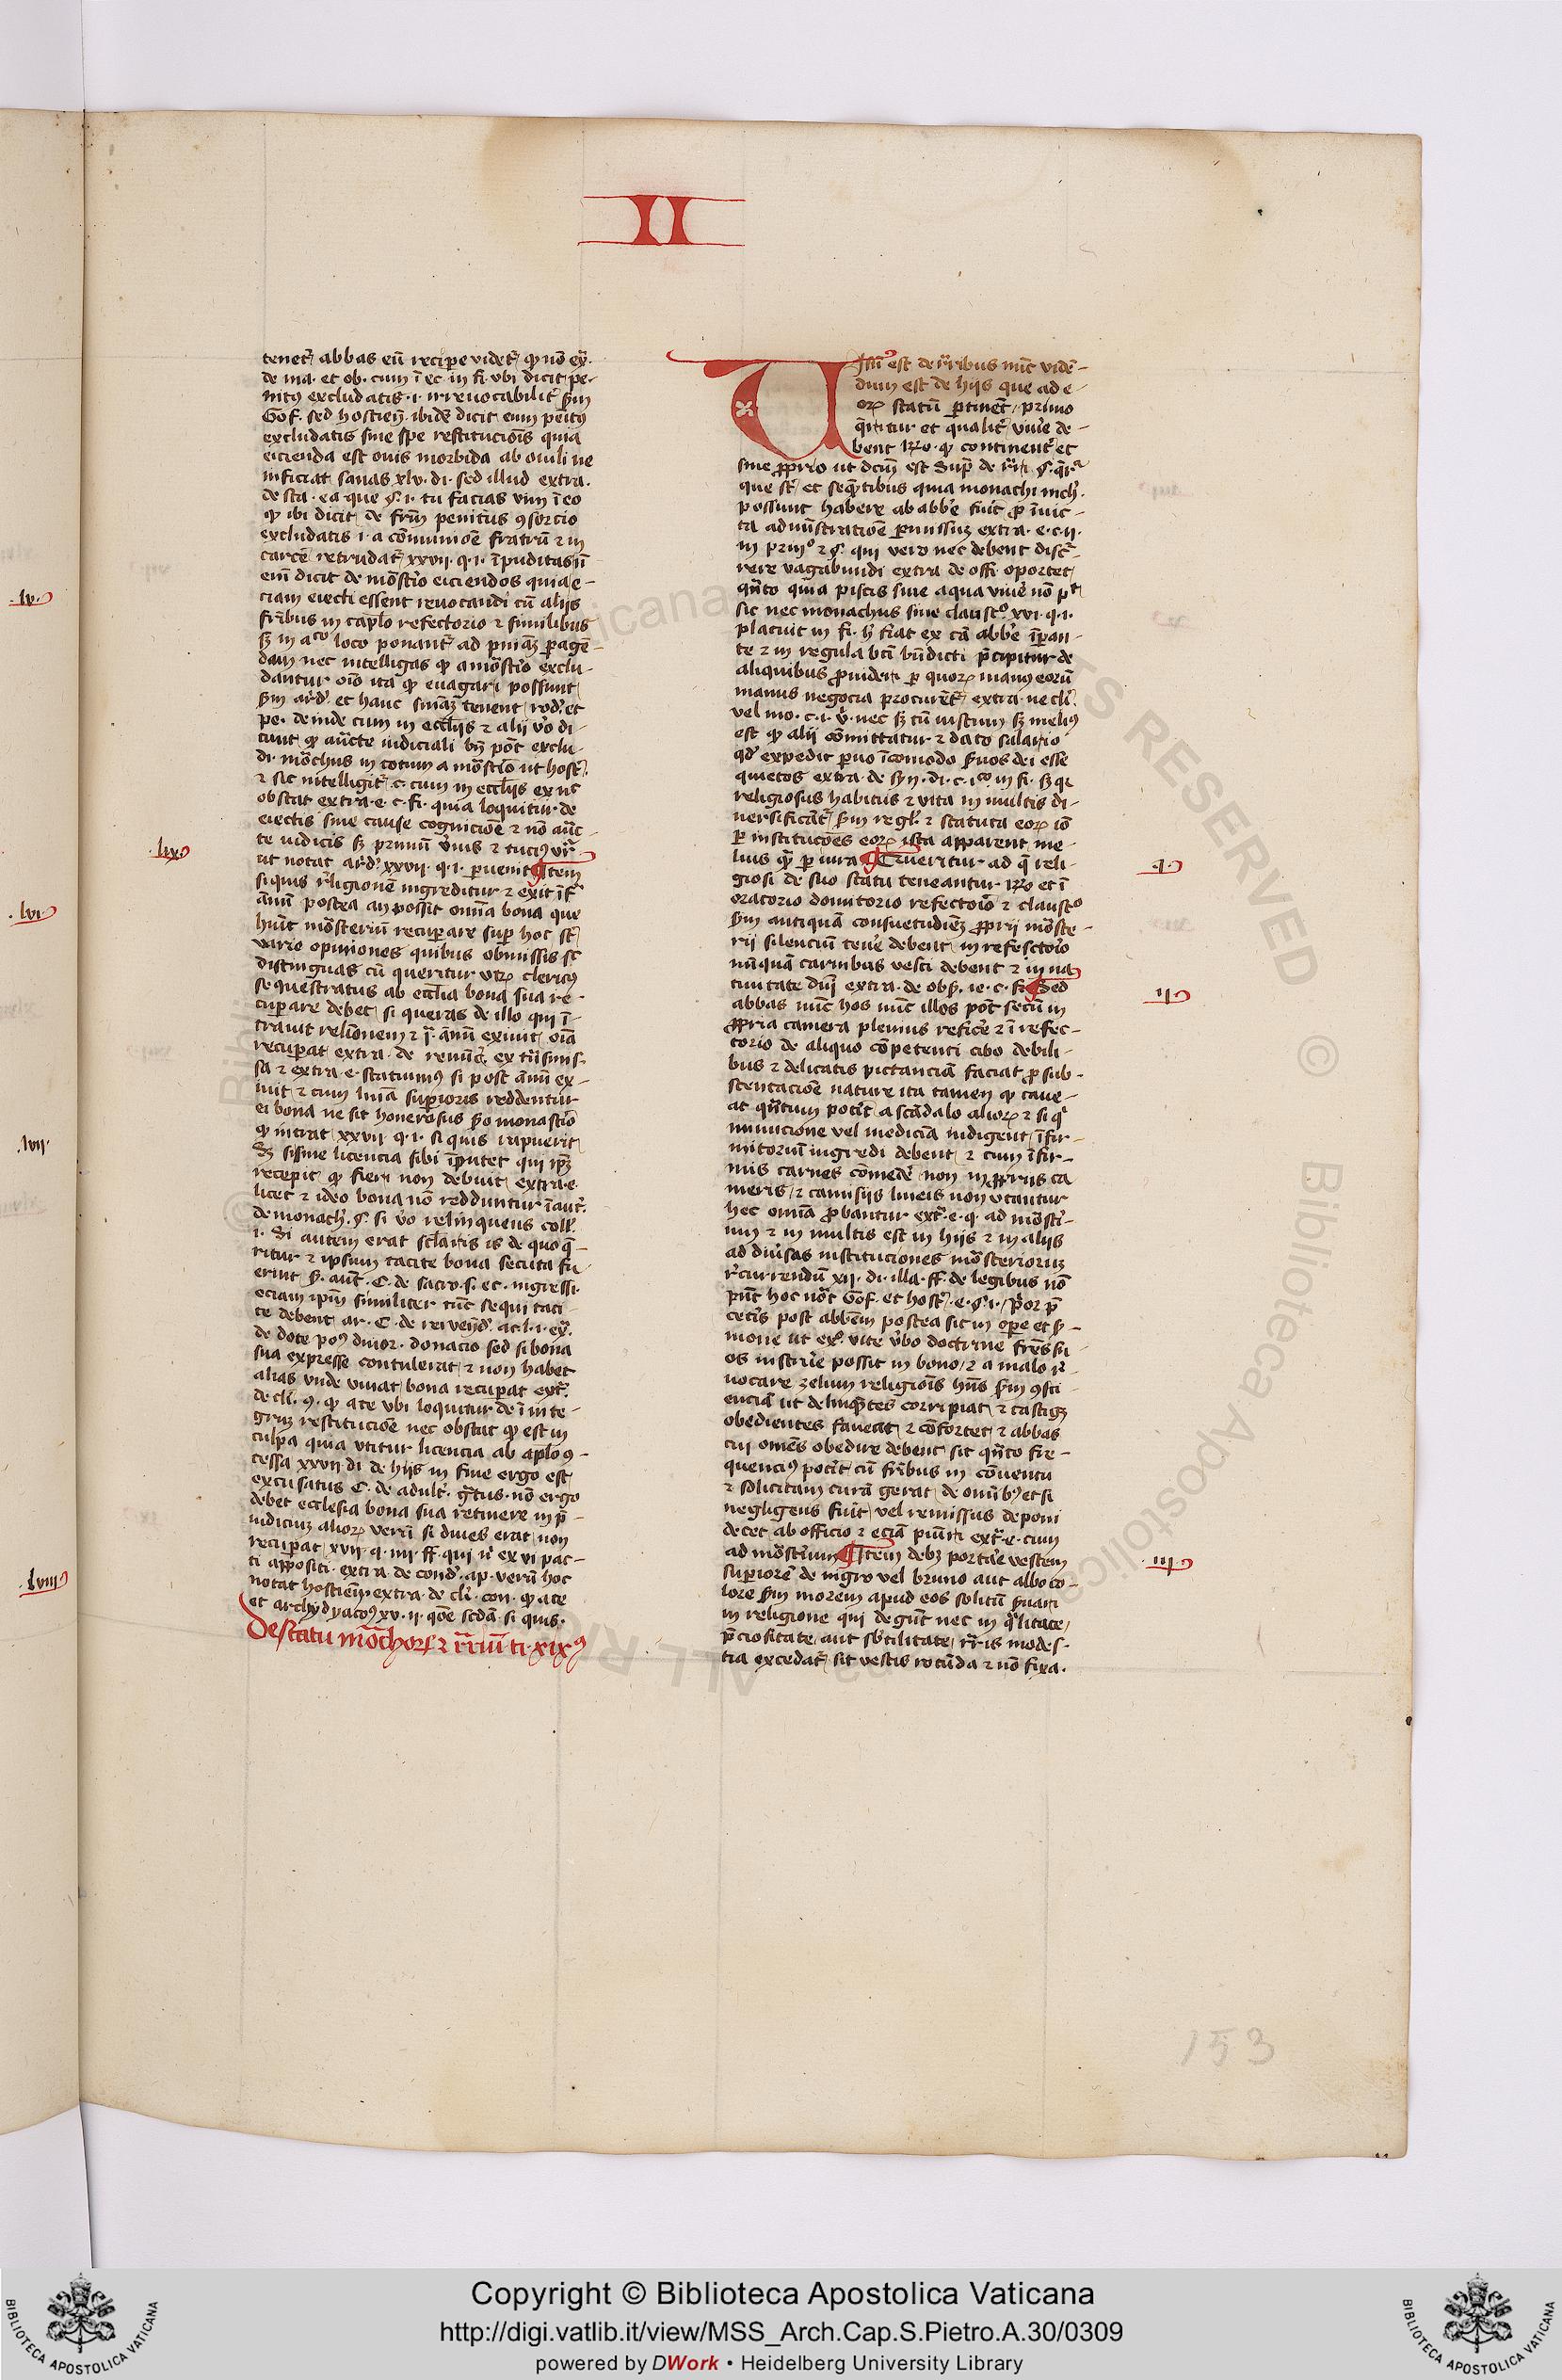 II
tenet᷑ abbas eū recipe videt᷑ qꝫ nō ex̄.
de ma. et ob. cum ī ec. in fi. vbi dicit pe-
nitꝰ excludatis .i. irreuocabilit᷑ s̄m
Gof. sed hostieñ. ibidē dicit eum peītꝰ
excludatis sine spe restitucōis quia
eicienda est ouis morbida ab ouili ne
inficiat sanas xlv. di. sed illud extra.
de sta. ea que §.i. tu facias vim ī eo
qꝫ ibi dicit de frm̄ penitus ꝯsorcio
excludatis .i. a cōmunioē fratrū ⁊ in
carcē retrudat᷑ xxvii. q.i. īpudicas n̄
em̄ dicit de mōst'io eiciendos quia e-
.lv.
ciam eiecti essent reuocandi cū alijs
fr̄ibus in caplo refectorio ⁊ similibus
sꝫ in a᷑co loco ponant᷑ ad pn̄iaꝫ ꝑagē-
dam nec intelligas qꝫ a mōst'io exclu-
dantur oīo ita qꝫ euagari possunt
s̄m ard'. et hanc sn̄iaꝫ tenent rod'. et
pe. deinde cum in ecclijs ⁊ alij v'o di-
cunt qꝫ auc̄te iudiciali bn̄ pōt exclu-
di. mōchus in totum a mōst'io ut host'.
⁊ sic intelligit᷑ .c. cum in ecclijs ex nc̄
obstat extra. e. c. fi. quia loquitur de
eiectis sine cause cognicioē ⁊ nō auc̄-
te iudicis sꝫ primū v'ius ⁊ tucꝰ vir̄
.lix.
ut notat ard'. xxvii. q.i. peruenit ¶Item
si quis religionē ingreditur ⁊ exit īf᷑
.lvi.
annū postea an possit omīa bona que
hūit mōsteriū recuꝑare suꝑ hoc st̄
varie opiniones quibus obmissis sic
distinguas cū queritur vtrꝫ clericꝰ
sequestratus ab ecclia bona sua re-
cuꝑare debet si queras de illo qui ī-
trauit relionem ⁊ ī. annū exiuit oīa
recuꝑat extra. de
sa ⁊ extra. e. statuimꝰ si post annū ex-
iuit ⁊ cum lnīa suꝑioris reddentur
ei bona ne sit honerosus s̄o monast'io
.lvii.
qꝫ intrat xxvii q.i. si quis rapuerit
Sꝫ si sine licencia sibi īputet qui ip̄ꝫ
recepit qꝫ fieri non debuit extra. e.
licet ⁊ ideo bona nō redduntur īaut'.
de monach'. §. si v'o relinquens coll'.
i. Si autem erat scl'aris is de quo q̄-
ritur ⁊ ipsum tacite bona secuta fu-
erint s̄. aut̄. C. de sacro. s. ec. ingressi.
eciam ip̄m similiter tūc sequi taci-
te debent ar. C. de rei vend'. ac l.i. ex̄.
de dote poꝰ diuor. donacio sed si bona
sua expresse contulerat ⁊ non habet
alias vnde viuat bona recuꝑat ext'.
de cli. ꝯ. qꝫ a te vbi loquitur de ī inte-
grꝫ restitucioē nec obstat qꝫ est in
culpa quia vtitur licencia ab aplo ꝯ-
cessa xxvii di de hijs in fine ergo est
excusatus C. de adult'. gtus. nō ergo
.lviii.
debet ecclesia bona sua retinere in p̄-
iudiciuꝫ aliorꝫ verū si diues erat non
recuꝑat xvii. q. iiii. ff. qui r̄ ex vi pac-
ti appositi. extra. de cond'. ap. verū hoc
notat hostieñ extra. de cli. con. qꝫ a te
et archydyacoꝰ xv. ii. qōe scdā. si quis.
De statu mōchorꝫ ⁊ r̄rium ti. xixꝰ
Uisū est de r̄ribus nūc vidē-
dum est de hijs que ad e-
orꝫ statū ꝑtinet primo
q̄ritur et qualit᷑ viu'e de-
bent R̄o. qꝫ continent᷑ et
sine ꝓprio ut dcm̄ est Sup̄ de
que st̄ et seq̄ntibus quia monachi nich'.
possunt habere ab abb'e fuīt ꝓ īiūc-
ta administratioē ꝑmissuꝫ extra. e. c. ii.
in prinº ⁊ §. qui vero nec debent disc̄r-
rere vagabundi extra de offi. oportet
qn̄to quia piscis sine aqua viu'e nō pt
sic nec monachus sine claust'o. xvi. q.i.
placuit in fi. h' fiat ex cā abb'e īꝑan-
te ⁊ in regula bt̄i bn̄dicti p̄cipitur de
aliquibus ꝓuideri ꝑ quorꝫ manus eorū
manus negocia procurēt᷑ extra. ne cli.
vel mo. c.i. v'. nec sꝫ tū iustum sꝫ meliꝰ
est qꝫ alij cōmittatur ⁊ dato salario
qd' expedit ꝑuo īcomodo s̄uos dei esse
quietos extra. de syn. di. c. ico. in fi. sꝫ qr
religiosus habitus ⁊ vita in multis di-
uersificāt᷑ s̄m regl'. ⁊ statuta eorꝫ iō
ꝑ institucōes eorꝫ ista apparent me-
lius q̄ꝫ ꝑ iura ¶Queritur ad q̄ reli-
.i.
giosi de suo statu teneantur R̄o et ī
oratorio dormitorio refectorio ⁊ claust'o
s̄m antiquā consuetudinē ꝓprij mōste-
rij silenciū ten'e debent in refectorio
nūquā carnibus vesci debent ⁊ in na-
tiuitate dn̄i extra. de obs̄. ie. c. fi. ¶Sed
.ii.
abbas nūc hos nūc illos pōt secū in
ꝓpria camera plenius refic'e ⁊ ī refec-
torio de aliquo cōpetenti cibo debili-
bus ⁊ delicatis pictanciā faciat ꝓ sub-
stentacioē nature ita tamen qꝫ caue-
at qn̄tum potit a scādalo aliorꝫ ⁊ si q̄
minucione vel mediciā indigent īfir-
mitoriū ingredi debent ⁊ cum īfir-
mis carnes comed'e non in ꝓprijs ca-
meris ⁊ camisijs lineis non vtantur
hec omīa ꝓbantur ext'. e. q. ad mōst'i-
um ⁊ in multis est in hijs ⁊ in alijs
ad diu'sas instituciones mōsteriorum
r̄currendū xii. di. illa. ff. de legibus nō
pn̄t hoc nōt Gof. et host'. e. §.i. Prior p̄
cet'is post abbēm postea sit in oꝑe et s̄-
mone ut exº. vite v'bo doctrine frēs su-
os instru'e possit in bono ⁊ a malo r̄-
uocare zelum religiōis hn̄s s̄m ꝯsci-
enciā ut delinq̄ntes corripiat ⁊ castigꝫ
obedientes faueat ⁊ cōfortet ⁊ abbas
cui omēs obedire debent sit qn̄to fre-
quenciꝰ potit cū fr̄ibus in cōuentu
⁊ solicitam curā gerat de omībꝰ et si
negligens fuīt vel remissus deponi
decet ab officio ⁊ eciā puniri ext'. e. cum
ad mōst'ium ¶Item debꝫ portare vestem
.iii.
suꝑiorē de nigro vel bruno aut albo co-
lore s̄m morem apud eos solitū s̄uari
in religione qui degūt nec in q̄litate
p̄ciositate aut sb̄tilitate r̄ris modes-
tia excedat᷑ sit vestis rotūda ⁊ nō fixa.
153
Copyright © Biblioteca Apostolica Vaticana
http://digi.vatlib.it/view/MSS_Arch.Cap.S.Pietro.A.30/0309
powered by DWork • Heidelberg University Library
BIBLIOTECA APOSTOLICA VATICANA
BIBLIOTECA APOSTOLICA VATICANA